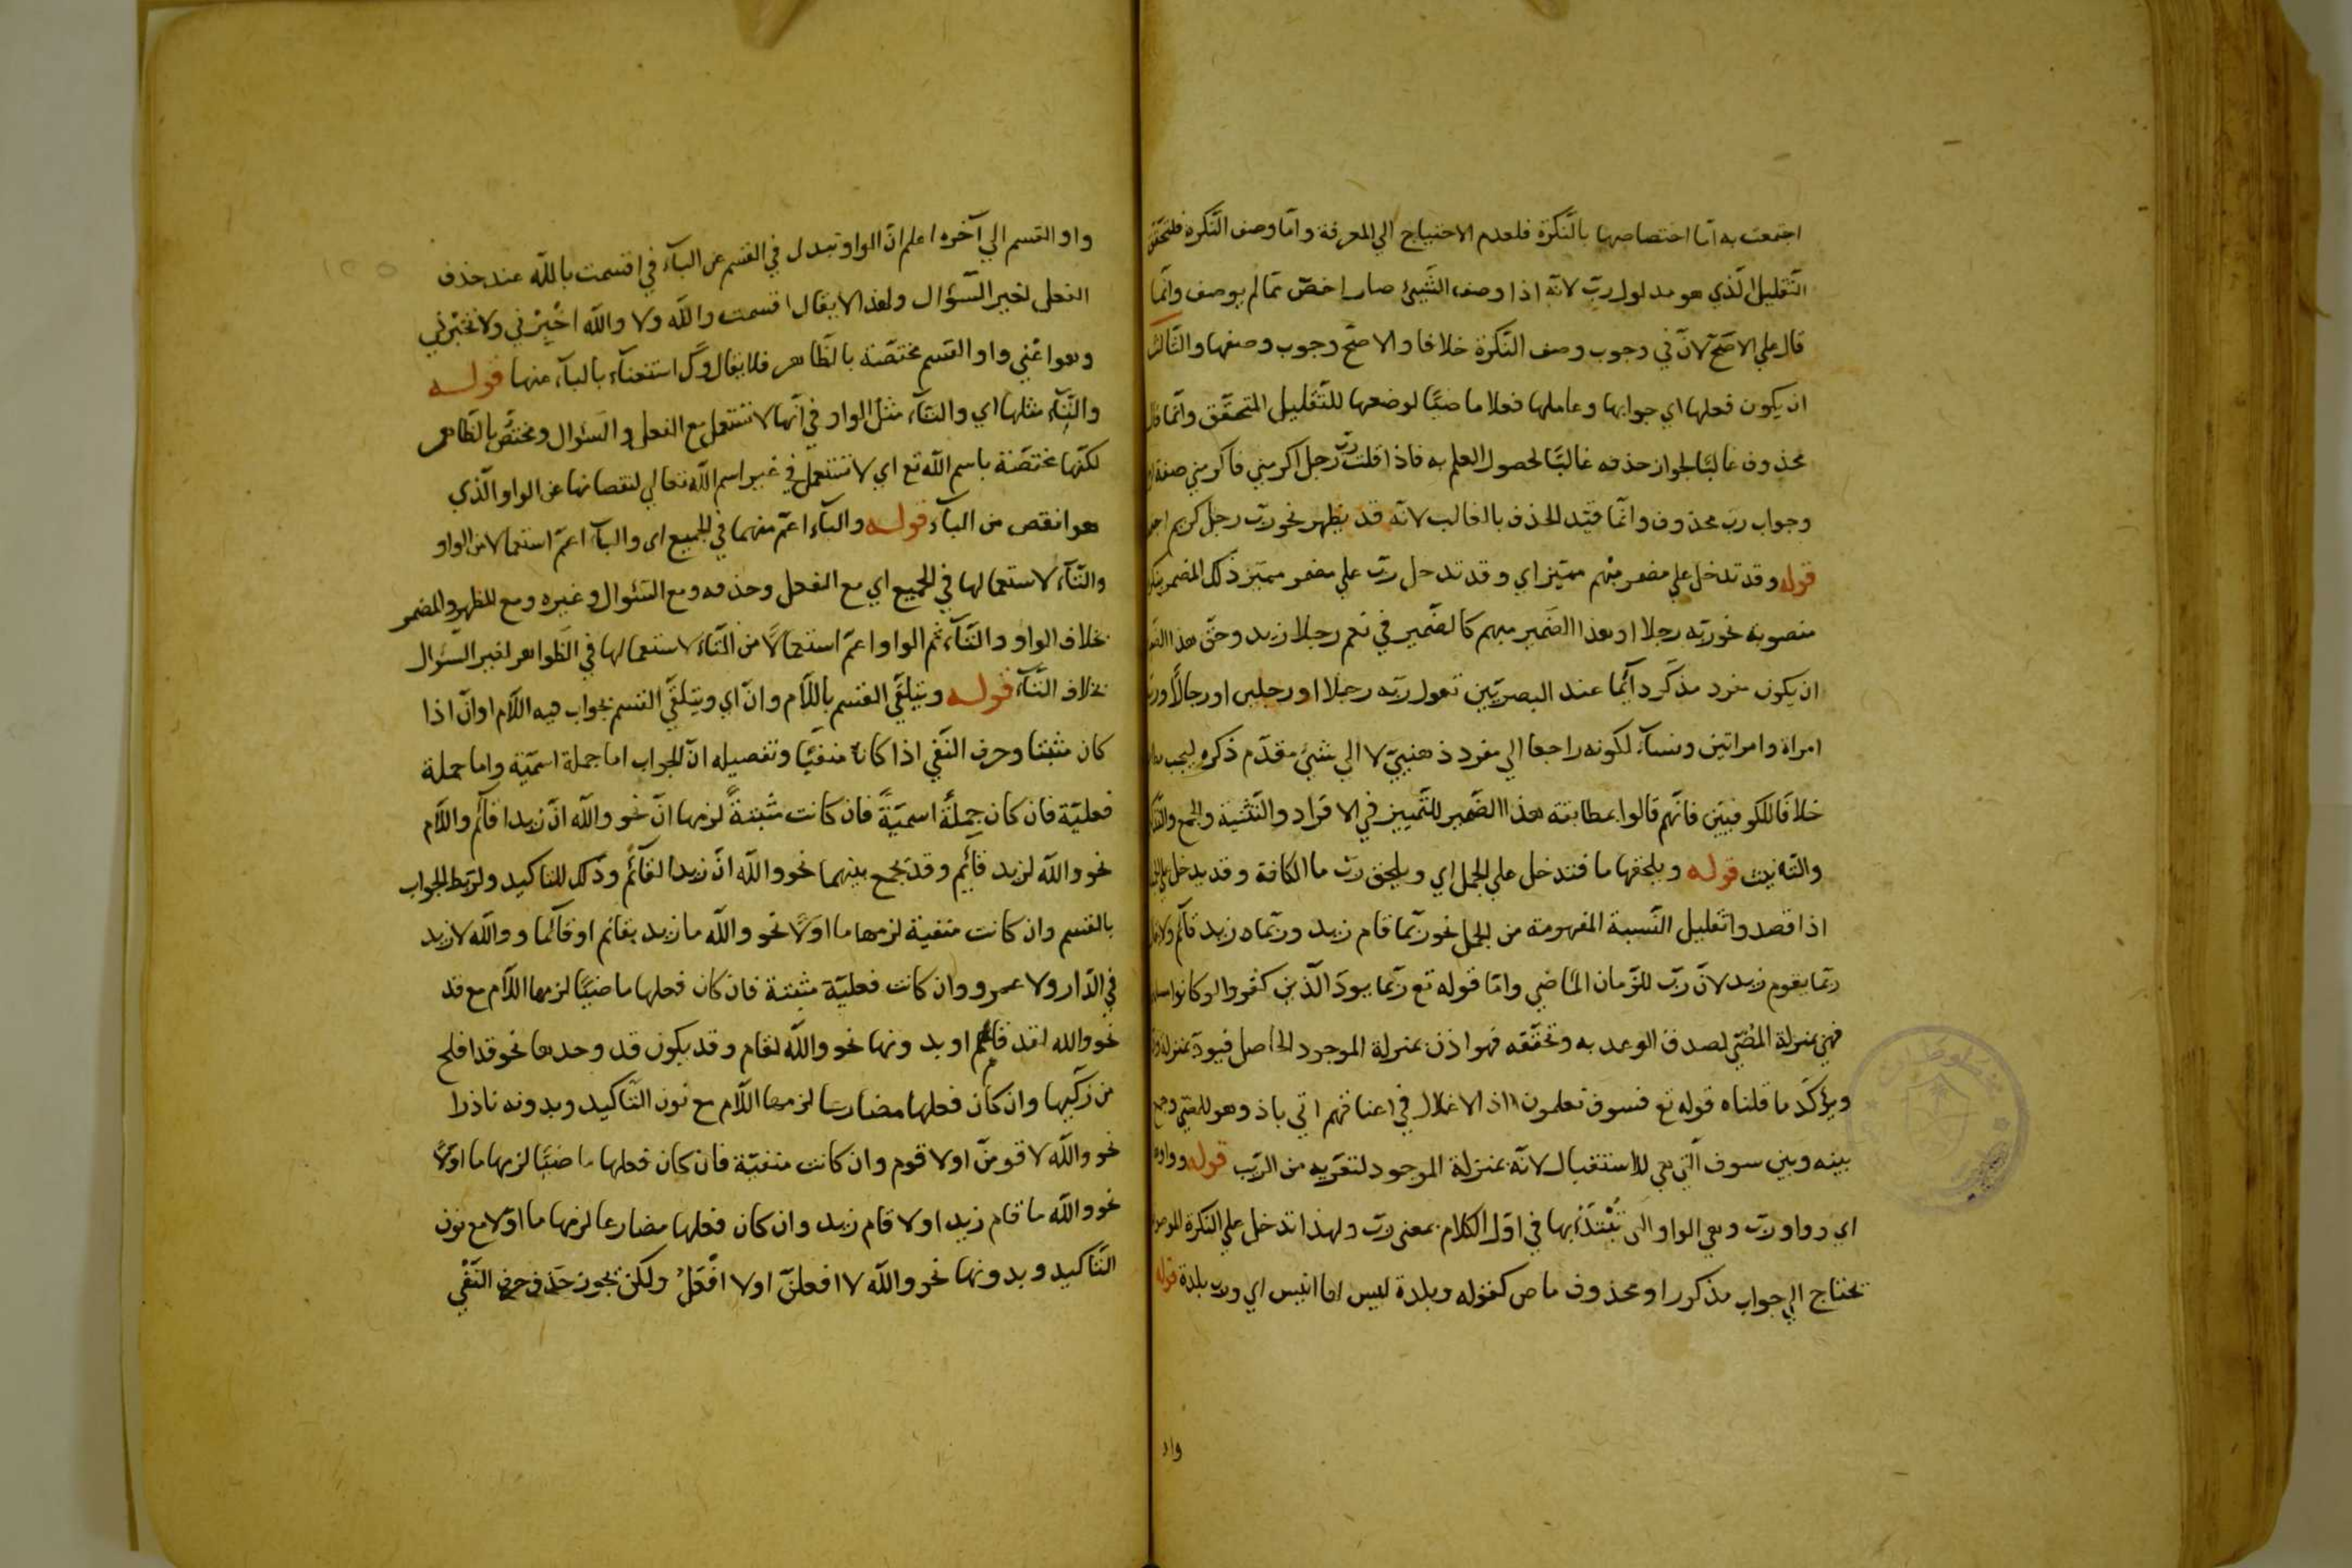 اجتمعت به امّا اختصاصها بالنّكرة فلعدم الاحتياج الي المعرفة وامّا وصف النّكرة فلتحقّق
التّقليل الّذي هو مدلول ربّ لانّه اذا وصف الشّيئ صار اخصّ ممّا لم يوصف وانّما
قال علي الاصحّ لانّ في وجوب وصف النّكرة خلافا والاصحّ وجوب وصفها والثّالث
ان يكون فعلها اي جوابها وعاملها فعلا ماضيًا لوضعها للتّقليل المتحقّق وانّما قال
محذوف غالبًا لجواز حذفه غالبًا لحصول العلم به فاذا قلت ربّ رجل اكرمني فاكرمني صفة
وجواب ربّ محذوف وانّما قيّد الحذف بالغالب لانّه قد يظهر نحو ربّ رجل كريم
قوله وقد تدخل علي مضمر مبهم مميّز اي وقد تدخل ربّ علي مضمر مميّز ذلك المضمر
منصوبة نحو ربّه رجلا وهذا الضّمير مبهم كالضّمير في نعم رجلا زيد وحقّ هذا
ان يكون مفرد مذكّر دآئما عند البصريّين تقول ربّه رجلا او رجلين او رجالًا
امراة وامراتين ونسآء لكونه راجعا الي مفرد ذهنيّ لا الي شيئ مقدّم ذكره ليجب
خلافًا للكوفيّين فانّهم قالوا بمطابقة هذا الضّمير للتّمييز في الافراد والتّثنية والجمع
والتّانيث قوله ويلحقها ما فتدخل علي الجمل اي ويلحق ربّ ما الكافة وقد يدخل علي
اذا قصدوا تقليل النّسبة المفهومة من الجمل نحو ربّما قام زيد وربّما زيد قآئم
ربّما يقوم زيد لانّ ربّ للزّمان الماضي وامّا قوله تع ربّما يودّ الّذين كفروا لو كانوا
فهي بمنزلة المضيّ لصدق الوعد به وتحقّقه فهو اذن بمنزلة الموجود الحاصل فيودّ بمنزلة
ويؤكّد ما قلناه قوله تع فسوف تعلمون اذ الاغلال في اعناقهم اتي باذ وهو للمضيّ وجمع
بينه وبين سوف الّتي هي للاستقبال لانّه بمنزلة الموجود لتقريبه من الرّب قوله وواو
اي وواو ربّ وهي الواو الّتي تُبْتَدَأ بها في اوّل الكلام بمعني ربّ ولهذا تدخل علي النّكرة
تحتاج الي جواب مذكور او محذوف ماض كقوله وبلدة ليس اي وربّ بلدة قوله
واو
واو القسم الي آخره اعلم انّ الواو تبدل في القسم عن البآء في اقسمت بالله عند حذف
الفعل لغير السّؤال ولهذا لا يقال اقسمت واللّه ولا واللّه اخْبِرْني ولا تخبرني
وهو اعْني واو القسم مختصّة بالظّاهر فلا يقال وك استغنآء بالبآء منها قوله
والتّآء مثلها اي والتّآء مثل الواو في انّها لا تستعمل مع الفعل والسّئوال ومختصّ بالظّاهر
لكنّها مختصّة باسم اللّه تع اي لا تستعمل في غير اسم اللّه تعالي لنقصانها عن الواو الّذي
هو انقص من البآء قوله والبآء اعمّ منهما في الجميع اي والبآء اعمّ استعمالا من الواو
والتّآء لاستعمالها في الجميع اي مع الفعل وحذفه ومع السّئوال وغيره ومع المظهر والمضمر
بخلاف الواو والتّآء ثم الواو اعمّ استعمالًا من التّاء لاستعمالها في الظّواهر لغير السّئوال
بخلاف التّآء قوله ويتلقّي القسم باللّام وانّ اي ويتلقّي القسم بجواب فيه اللّام او انّ اذا
كان مثبتا وحرف النّفي اذا كان منفيًّا وتفصيله انّ الجواب اما جملة اسميّة واما جملة
فعليّة فان كان جملةً اسميّةً فان كانت مثبتةً لزمها انّ نحو واللّه انّ زيدا قآئم واللّام
نحو واللّه لزيد قآئم وقد يجمع بينهما نحو واللّه انّ زيدا لقآئم وذلك للتاكيد ولربط الجواب
بالقسم وان كانت منفية لزمها ما او لا نحو واللّه ما زيد بقائم او قآئما وواللّه لا زيد
في الدّار ولا عمرو وان كانت فعليّة مثبتة فان كان فعلها ماضيًا لزمها اللّام مع قد
نحو واللّه لقد قام او بدونها نحو واللّه لقام وقد يكون قد وحدها نحو قد افلح
من زكّيها وان كان فعلها مضارعا لزمها اللّام مع نون التّاكيد وبدونه نادرا
نحو واللّه لاقومنّ او لاقوم وان كانت منفيّة فان كان فعلها ماضيًا لزمها ما او لا
نحو واللّه ما قام زيد او لا قام زيد وان كان فعلها مضارعا لزمها ما او لا مع نون
التّاكيد وبدونها نحو واللّه لا افعلنّ او لا افْعَلُ ولكن يجوز حَذف حرف النّفْي